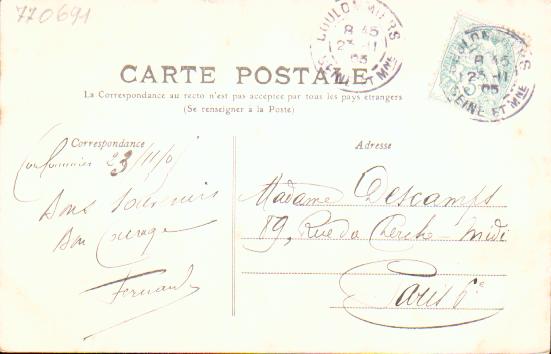 770691
COULOMMIERS
8 45
23 -11
05
SEINE ET MNE
COULOMMIERS
8 45
23 -11
05
SEINE ET MNE
CARTE POSTALE
La Correspondance au recto n'est pas acceptée par tous les pays étrangers
(Se renseigner à la Poste)
Correspondance
Adresse
Coulommiers 23/11/05
Bons souvenirs
Bon Courage
Fernand
Madame Descamps
89, Rue du Cherche-Midi
Paris 6e